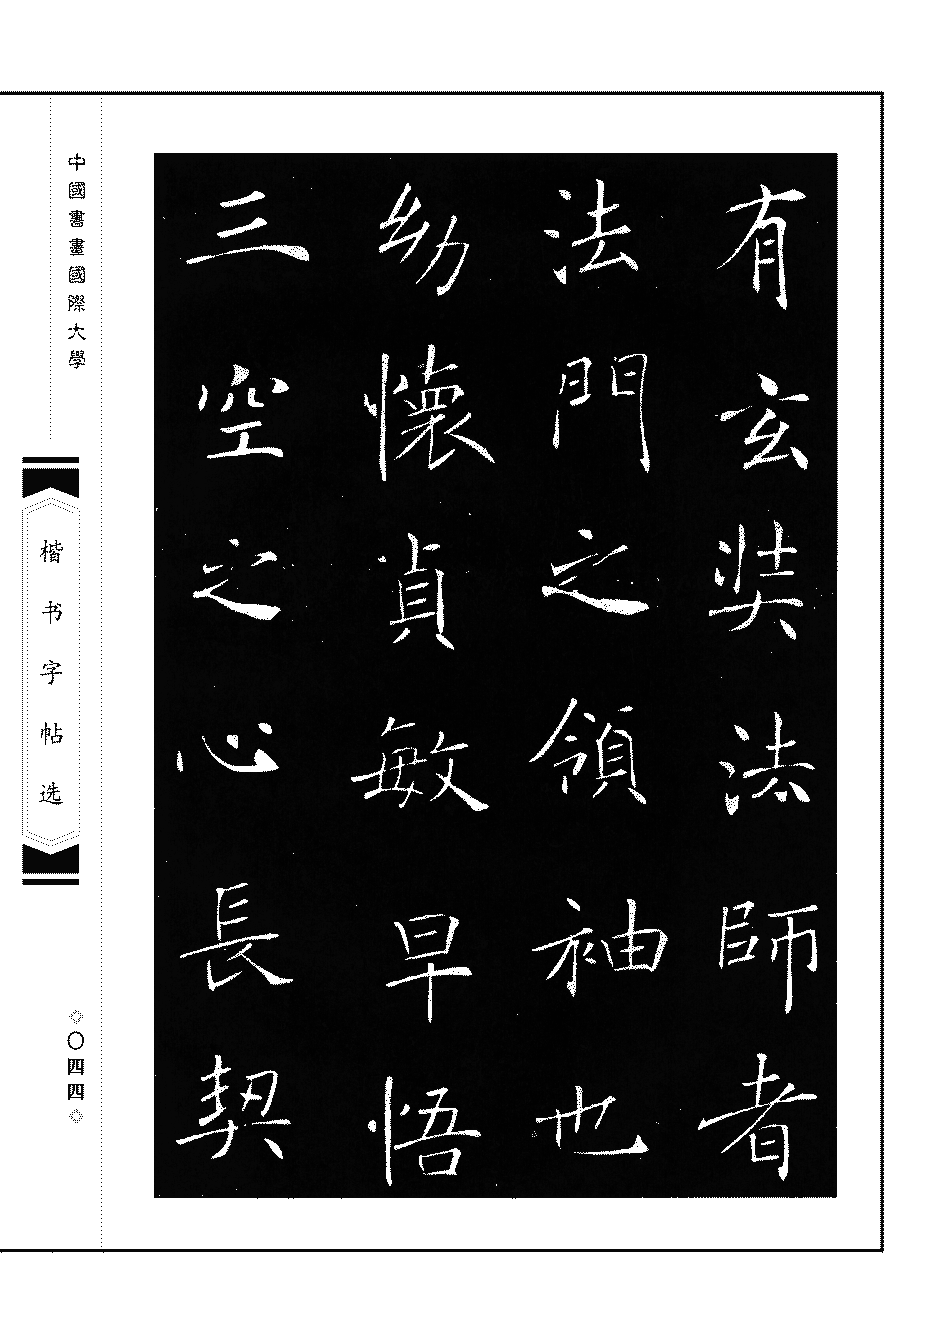 有玄奘法師者
法門之領袖也
幼懷貞敏早悟
三空之心長契
中國書畫國際大學
楷书字帖选
◇〇四四◇